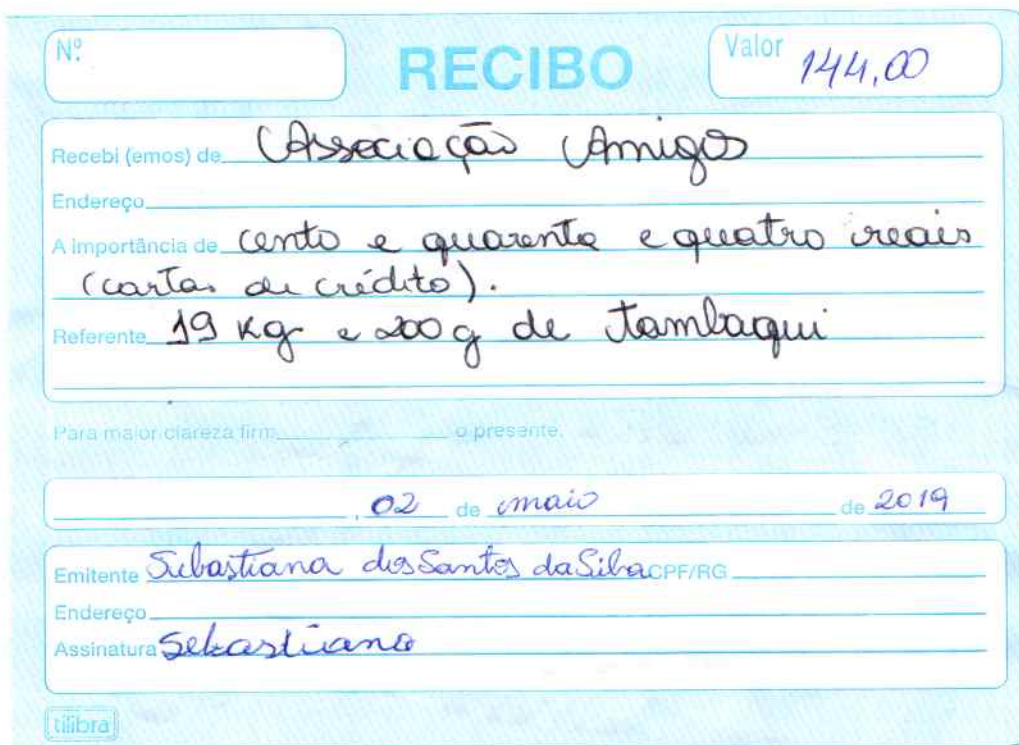 Nº
RECIBO
Valor 144,00
Recebi (emos) de Associação Amigos
Endereço
A importância de cento e quarenta e quatro reais
(cartas de crédito).
Referente 19 kg e 200g de tambaqui
Para maior clareza firm o presente.
, 02 de maio de 2019
Emitente Sebastiana dos Santos da Silva CPF/RG
Endereço
Assinatura Sebastiana
tilibra